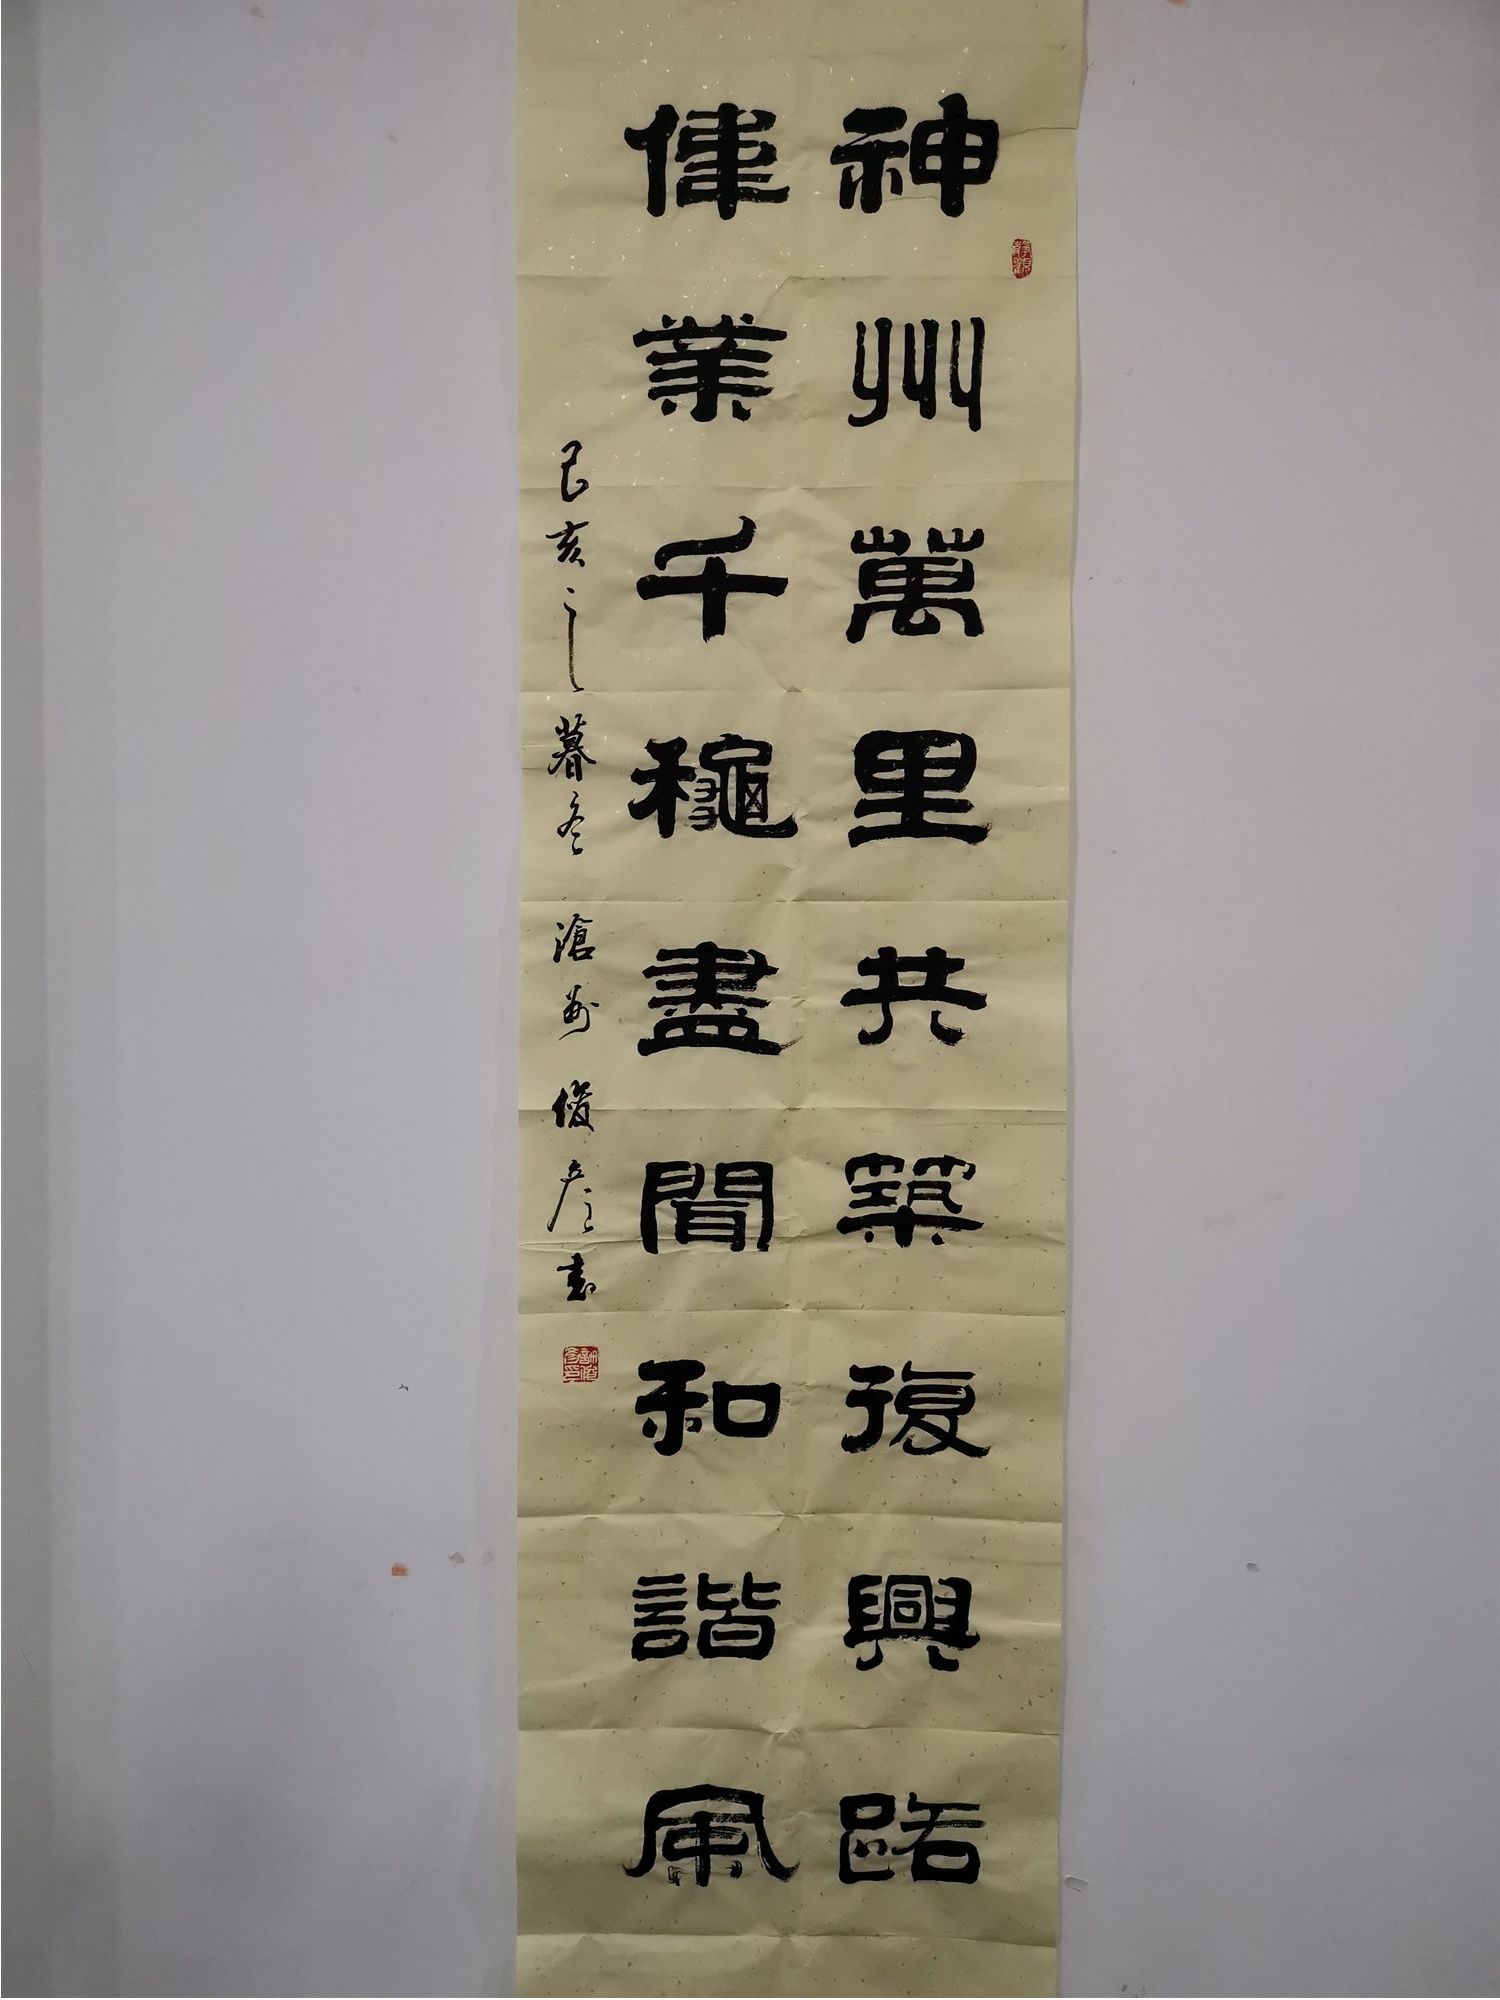 神州萬里共築復興路
偉業千龝盡聞和諧風
己亥之暮冬滄州俊彦書